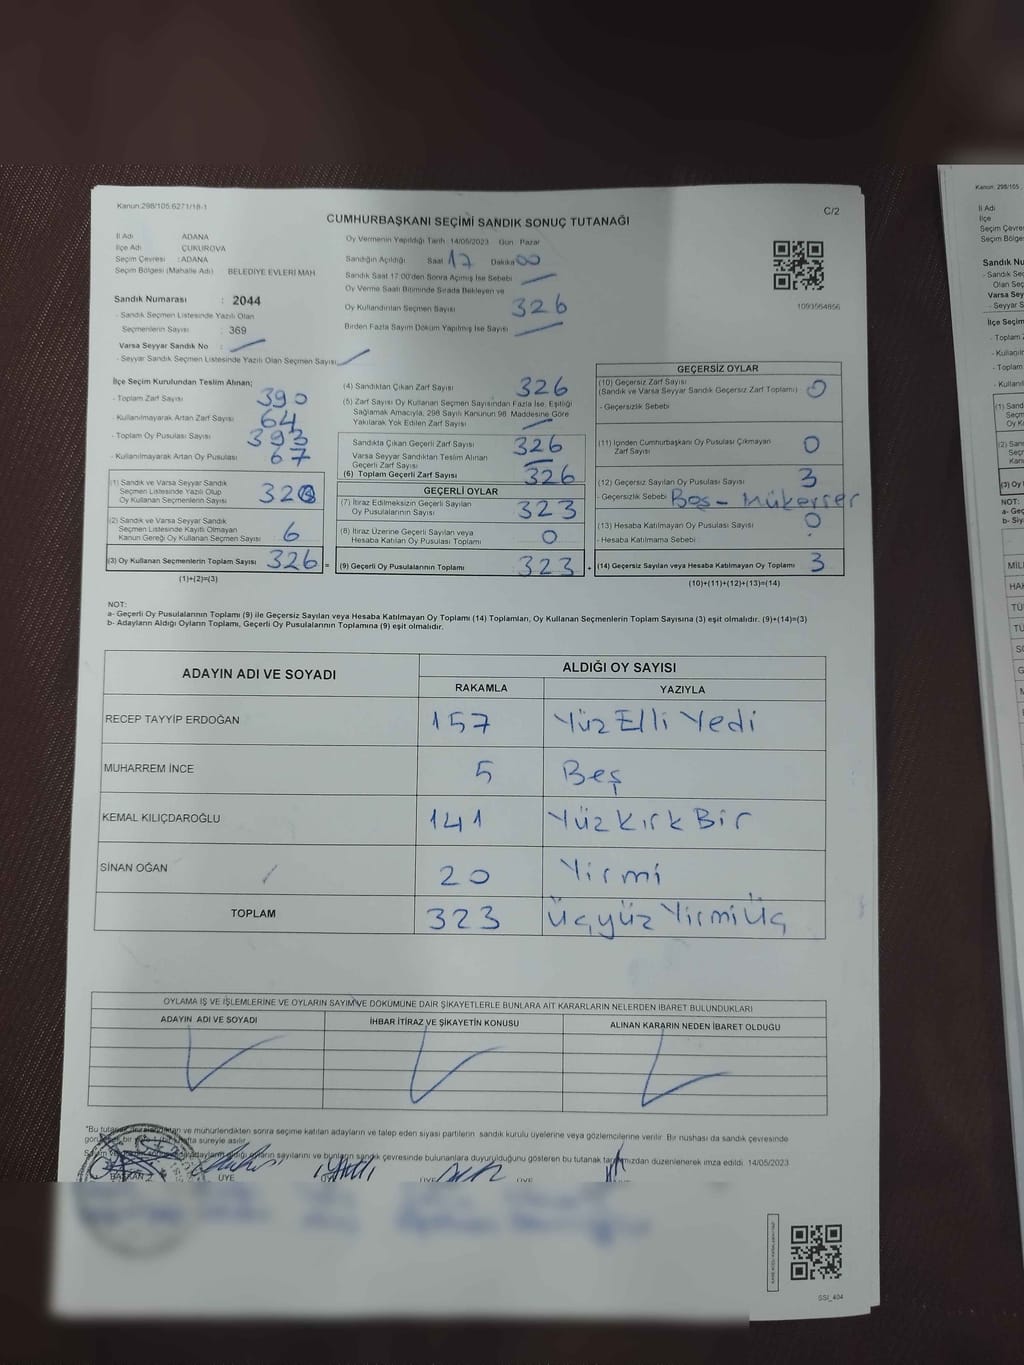 Kanun:298/105,6271/18-1
CUMHURBAŞKANI SEÇİMİ SANDIK SONUÇ TUTANAĞI
C/2
İl Adı ADANA
İlçe Adı ÇUKUROVA
Seçim Çevresi : ADANA
Seçim Bölgesi (Mahalle Adı) BELEDİYE EVLERİ MAH.
Sandık Numarası : 2044
- Sandık Seçmen Listesinde Yazılı Olan
Seçmenlerin Sayısı : 369
Varsa Seyyar Sandık No :
- Seyyar Sandık Seçmen Listesinde Yazılı Olan Seçmen Sayısı
Oy Vermenin Yapıldığı Tarih: 14/05/2023 Gün: Pazar
Sandığın Açıldığı Saat 17 Dakika 00
Sandık Saat 17:00'den Sonra Açılmış İse Sebebi
Oy Verme Saati Bitiminde Sırada Bekleyen ve
Oy Kullandırılan Seçmen Sayısı 326
Birden Fazla Sayım Döküm Yapılmış İse Sayısı
1093564856
İlçe Seçim Kurulundan Teslim Alınan;
- Toplam Zarf Sayısı 390
- Kullanılmayarak Artan Zarf Sayısı 64
- Toplam Oy Pusulası Sayısı 393
- Kullanılmayarak Artan Oy Pusulası 67
(1) Sandık ve Varsa Seyyar Sandık
Seçmen Listesinde Yazılı Olup
Oy Kullanan Seçmenlerin Sayısı
(2) Sandık ve Varsa Seyyar Sandık
Seçmen Listesinde Kayıtlı Olmayan
Kanun Gereği Oy Kullanan Seçmen Sayısı 6
(3) Oy Kullanan Seçmenlerin Toplam Sayısı 326 =
(1)+(2)=(3)
(4) Sandıktan Çıkan Zarf Sayısı 326
(5) Zarf Sayısı Oy Kullanan Seçmen Sayısından Fazla İse, Eşitliği
Sağlamak Amacıyla, 298 Sayılı Kanunun 98. Maddesine Göre
Yakılarak Yok Edilen Zarf Sayısı
Sandıkta Çıkan Geçerli Zarf Sayısı 326
Varsa Seyyar Sandıktan Teslim Alınan
Geçerli Zarf Sayısı
(6) Toplam Geçerli Zarf Sayısı 326
GEÇERLİ OYLAR
(7) İtiraz Edilmeksizin Geçerli Sayılan
Oy Pusulalarının Sayısı 323
(8) İtiraz Üzerine Geçerli Sayılan veya
Hesaba Katılan Oy Pusulası Toplamı 0
(9) Geçerli Oy Pusulalarının Toplamı 323 +
GEÇERSİZ OYLAR
(10) Geçersiz Zarf Sayısı
(Sandık ve Varsa Seyyar Sandık Geçersiz Zarf Toplamı) 0
- Geçersizlik Sebebi
(11) İçinden Cumhurbaşkanı Oy Pusulası Çıkmayan
Zarf Sayısı 0
(12) Geçersiz Sayılan Oy Pusulası Sayısı 3
- Geçersizlik Sebebi Boş - Mükerrer
(13) Hesaba Katılmayan Oy Pusulası Sayısı 0
- Hesaba Katılmama Sebebi
(14) Geçersiz Sayılan veya Hesaba Katılmayan Oy Toplamı 3
(10)+(11)+(12)+(13)=(14)
NOT:
a- Geçerli Oy Pusulalarının Toplamı (9) ile Geçersiz Sayılan veya Hesaba Katılmayan Oy Toplamı (14) Toplamları, Oy Kullanan Seçmenlerin Toplam Sayısına (3) eşit olmalıdır. (9)+(14)=(3)
b- Adayların Aldığı Oyların Toplamı, Geçerli Oy Pusulalarının Toplamına (9) eşit olmalıdır.
ADAYIN ADI VE SOYADI ALDIĞI OY SAYISI
RAKAMLA YAZIYLA
RECEP TAYYİP ERDOĞAN 157 Yüz Elli Yedi
MUHARREM İNCE 5 Beş
KEMAL KILIÇDAROĞLU 141 Yüz Kırk Bir
SİNAN OĞAN 20 Yirmi
TOPLAM 323 Üçyüz Yirmi Üç
OYLAMA İŞ VE İŞLEMLERİNE VE OYLARIN SAYIM VE DÖKÜMÜNE DAİR ŞİKAYETLERLE BUNLARA AİT KARARLARIN NELERDEN İBARET BULUNDUKLARI
ADAYIN ADI VE SOYADI İHBAR İTİRAZ VE ŞİKAYETİN KONUSU ALINAN KARARIN NEDEN İBARET OLDUĞU
ve mühürlendikten sonra seçime katılan adayların ve talep eden siyasi partilerin sandık kurulu üyelerine veya gözlemcilerine verilir. Bir nüshası da sandık çevresinde
hafta süreyle asılır.
aldığı oyların sayılarını ve bunların sandık çevresinde bulunanlara duyurulduğunu gösteren bu tutanak tarafımızdan düzenlenerek imza edildi. 14/05/2023
BAŞKAN ÜYE ÜYE ÜYE
SSI_404
Kanun: 298/105
İl Adı
İlçe
Seçim Çevre
Seçim Bölge
Sandık Nu